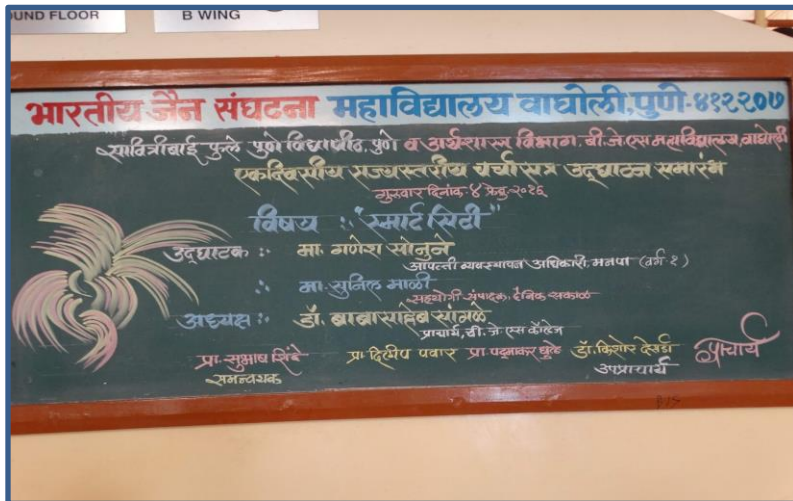 OUND FLOOR
B WING
भारतीय जैन संघटना महाविद्यालय वाघोली,पुणे-४१२२०७
सावित्रीबाई फुले पुणे विद्यापीठ,पुणे व अर्थशास्त्र विभाग, बी.जे.एस महाविद्यालय,वाघोली
एकदिवसीय राज्यस्तरीय चर्चा सत्र उद्घाटन समारंभ
गुरुवार दिनांक-४ फेब्रु-२०१६
विषय :- "स्मार्ट सिटी"
उद्घाटक :- मा. गणेश सोनुने
आपत्ती व्यवस्थापन अधिकारी, मनपा (वर्ग १)
:- मा. सुनिल माळी
सहयोगी संपादक, दैनिक सकाळ
अध्यक्ष :- डॉ. बाबासाहेब सांगळे
प्राचार्य, बी. जे एस कॉलेज
प्रा. सुभाष शिंदे प्रा दिलीप पवार प्रा. पद्माकर घुले डॉ. किशोर देसर्डा प्राचार्य
समन्वयक उपप्राचार्य